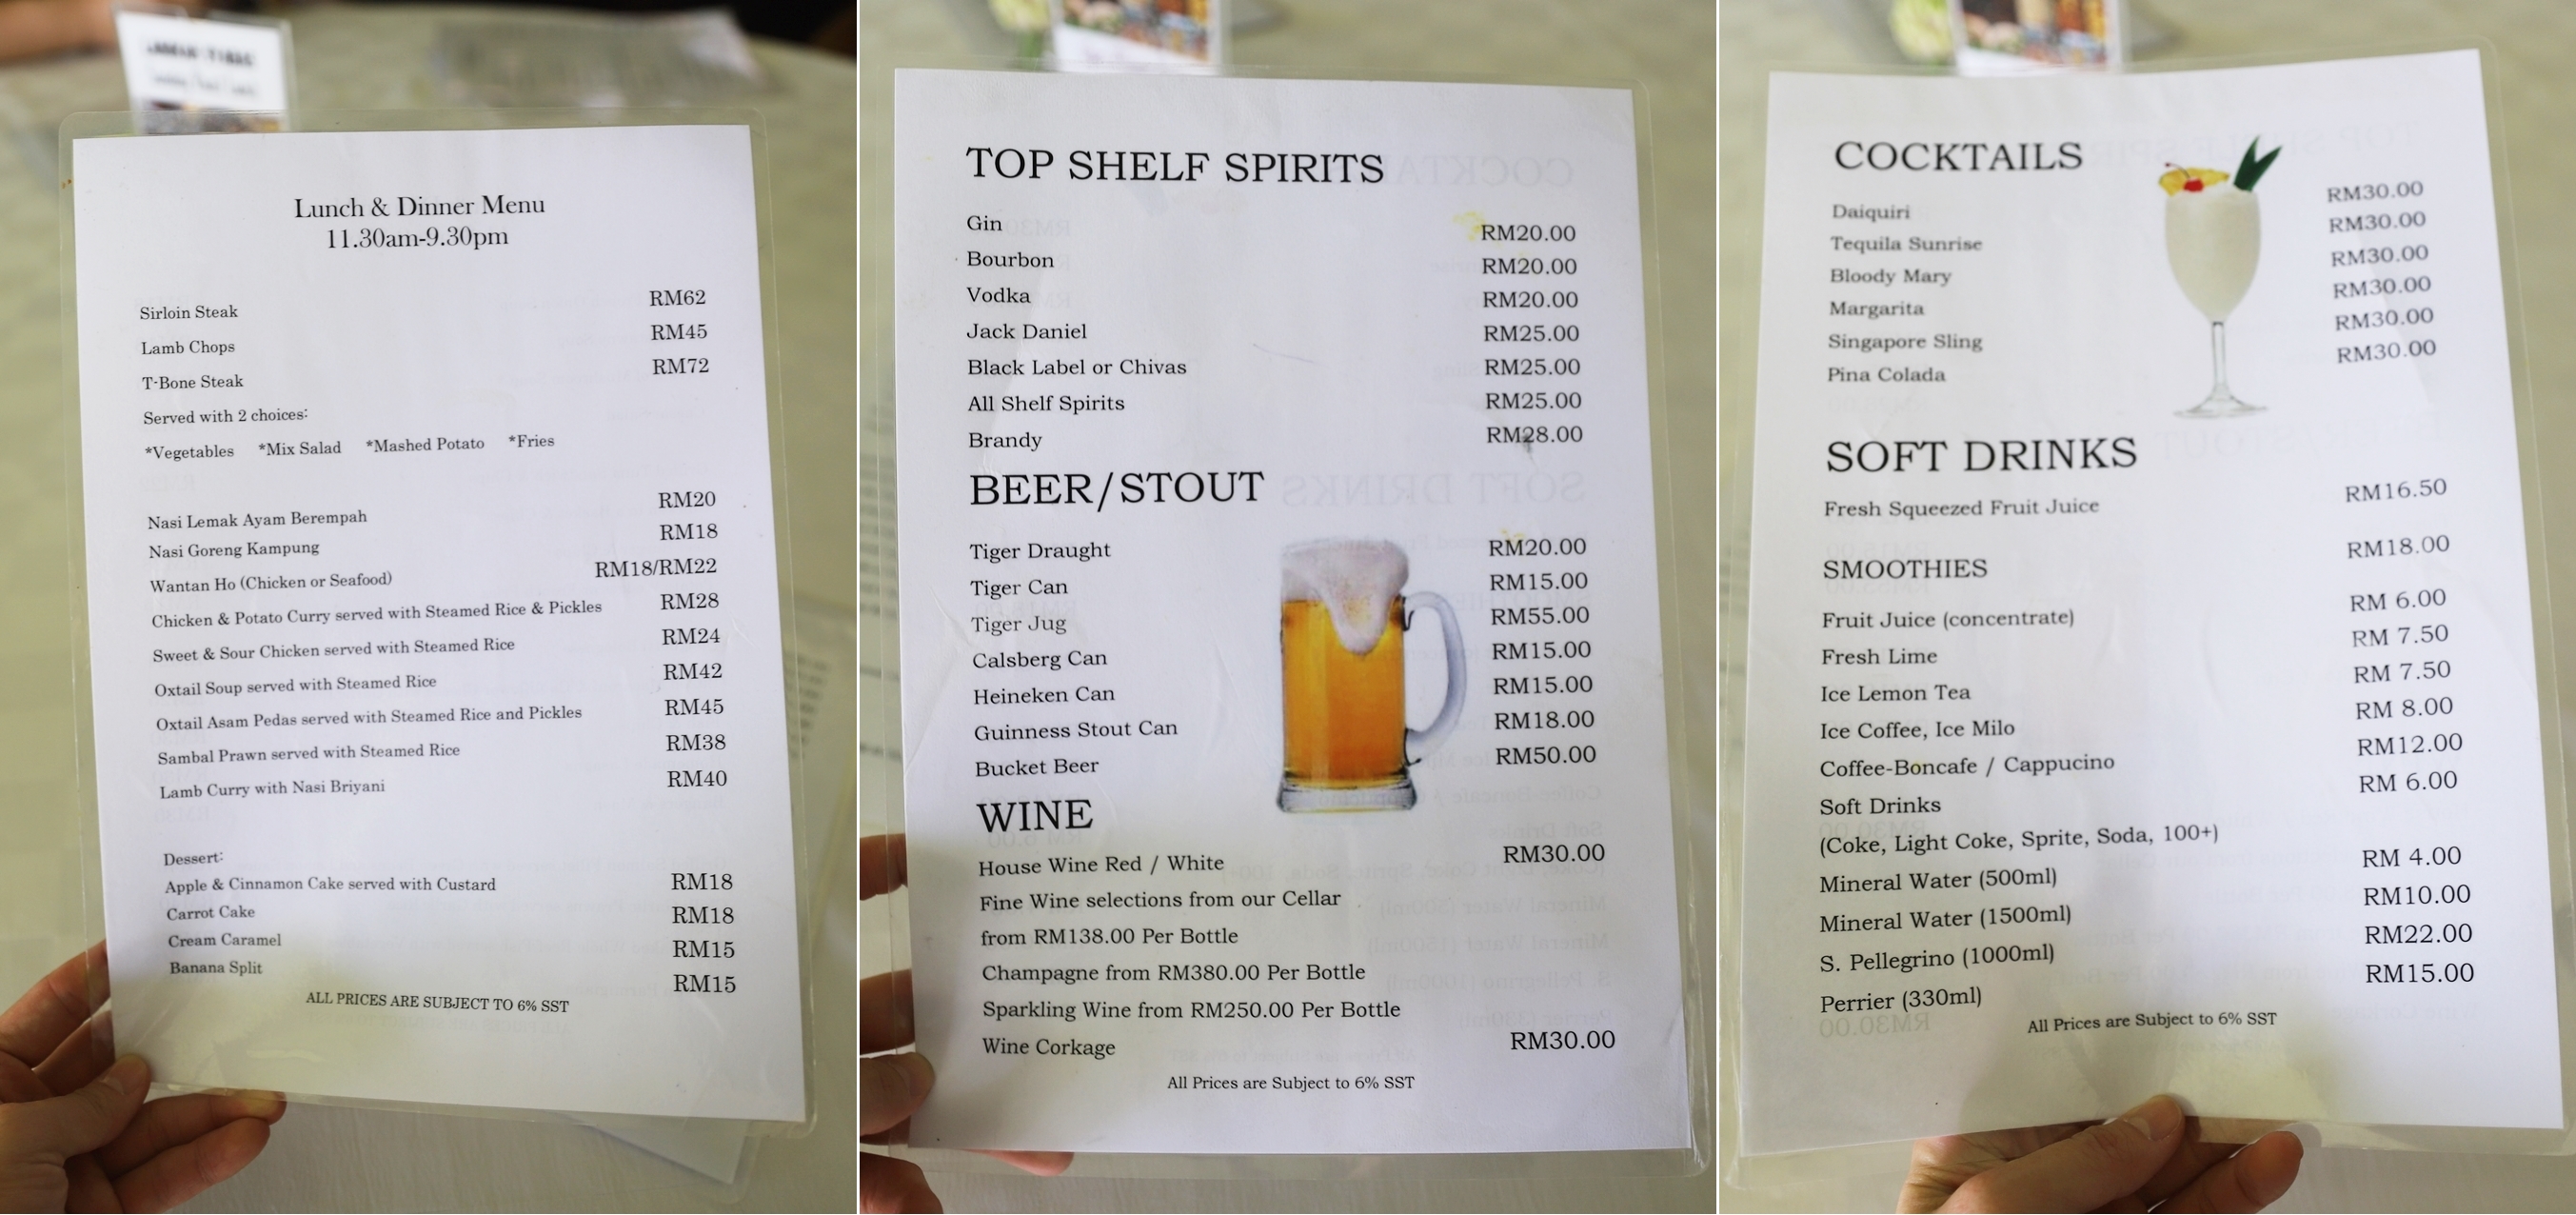 Lunch & Dinner Menu
11.30am-9.30pm
Sirloin Steak RM62
Lamb Chops RM45
T-Bone Steak RM72
Served with 2 choices:
*Vegetables *Mix Salad *Mashed Potato *Fries
Nasi Lemak Ayam Berempah RM20
Nasi Goreng Kampung RM18
Wantan Ho (Chicken or Seafood) RM18/RM22
Chicken & Potato Curry served with Steamed Rice & Pickles RM28
Sweet & Sour Chicken served with Steamed Rice RM24
Oxtail Soup served with Steamed Rice RM42
Oxtail Asam Pedas served with Steamed Rice and Pickles RM45
Sambal Prawn served with Steamed Rice RM38
Lamb Curry with Nasi Briyani RM40
Dessert:
Apple & Cinnamon Cake served with Custard RM18
Carrot Cake RM18
Cream Caramel RM15
Banana Split RM15
ALL PRICES ARE SUBJECT TO 6% SST
TOP SHELF SPIRITS
Gin RM20.00
Bourbon RM20.00
Vodka RM20.00
Jack Daniel RM25.00
Black Label or Chivas RM25.00
All Shelf Spirits RM25.00
Brandy RM28.00
BEER/STOUT
Tiger Draught RM20.00
Tiger Can RM15.00
Tiger Jug RM55.00
Calsberg Can RM15.00
Heineken Can RM15.00
Guinness Stout Can RM18.00
Bucket Beer RM50.00
WINE
House Wine Red / White RM30.00
Fine Wine selections from our Cellar
from RM138.00 Per Bottle
Champagne from RM380.00 Per Bottle
Sparkling Wine from RM250.00 Per Bottle
Wine Corkage RM30.00
All Prices are Subject to 6% SST
COCKTAILS
Daiquiri RM30.00
Tequila Sunrise RM30.00
Bloody Mary RM30.00
Margarita RM30.00
Singapore Sling RM30.00
Pina Colada RM30.00
SOFT DRINKS
Fresh Squeezed Fruit Juice RM16.50
SMOOTHIES RM18.00
Fruit Juice (concentrate) RM 6.00
Fresh Lime RM 7.50
Ice Lemon Tea RM 7.50
Ice Coffee, Ice Milo RM 8.00
Coffee-Boncafe / Cappucino RM12.00
Soft Drinks RM 6.00
(Coke, Light Coke, Sprite, Soda, 100+)
Mineral Water (500ml) RM 4.00
Mineral Water (1500ml) RM10.00
S. Pellegrino (1000ml) RM22.00
Perrier (330ml) RM15.00
All Prices are Subject to 6% SST